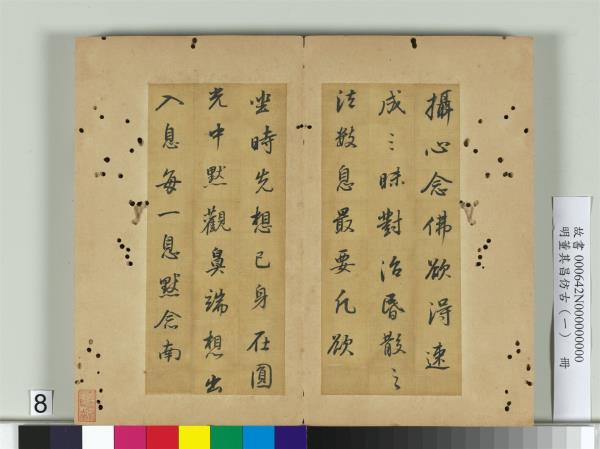 攝心念佛欲得速
成三昧對治昏散之
法數息最要凡欲
坐時先想己身在圓
光中默觀鼻端想出
入息每一息默念南
故書 000642N000000000
明董其昌仿古（一） 冊
8